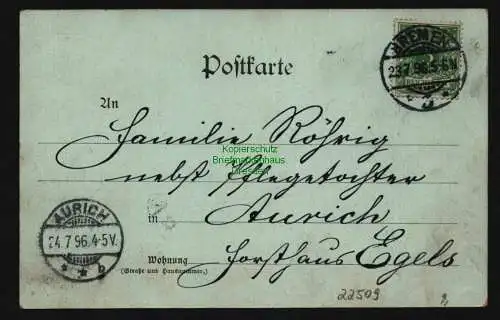 BREMEN
23.7.96.5-6N.
Postkarte
An
Familie Röhrig
Kopierschutz
Briefmarkenhaus
Dresden
nebst Pflegetochter
in Aurich
Wohnung Forsthaus Egels
(Straße und Hausnummer)
AURICH
24.7.96.4-5V.
* * b
22509